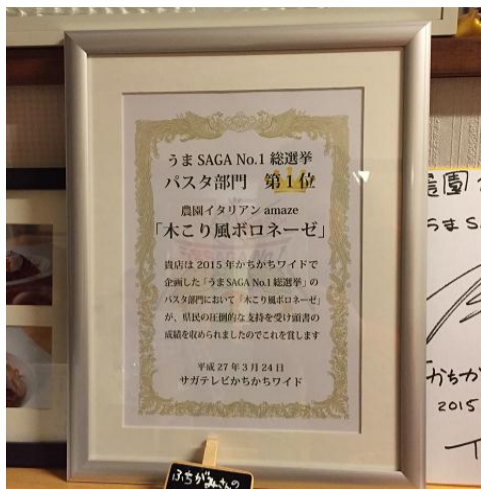 うまSAGA No.1総選挙
パスタ部門 第1位
農園イタリアン amaze
「木こり風ボロネーゼ」
貴店は2015年かちかちワイドで
企画した「うまSAGA No.1総選挙」の
パスタ部門において「木こり風ボロネーゼ」
が、県民の圧倒的な支持を受け頭書の
成績を収められましたのでこれを賞します
平成27年3月24日
サガテレビかちかちワイド
ふちがみさんの
農園
うまS
かちか
2015